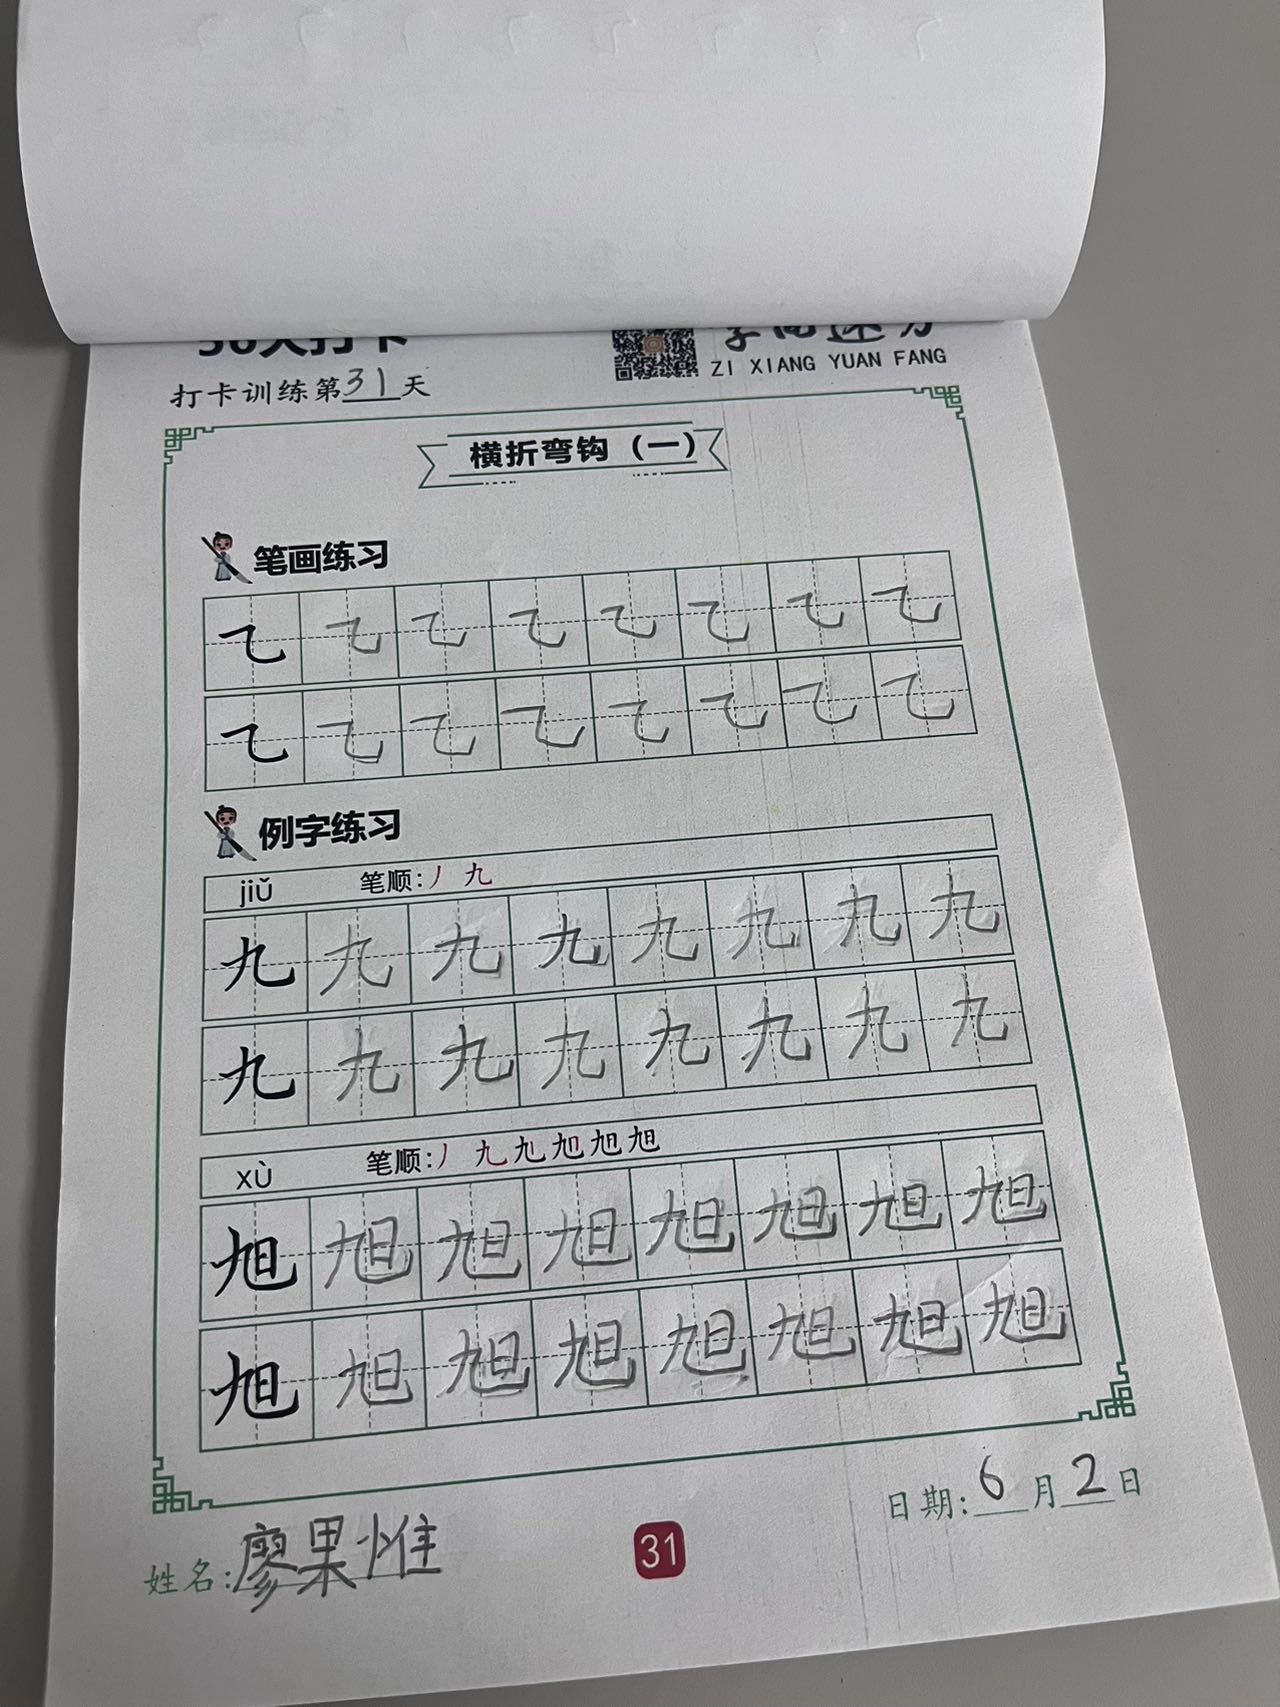 打卡训练第31天
ZI XIANG YUAN FANG
横折弯钩（一）
笔画练习
㇈ ㇈ ㇈ ㇈ ㇈ ㇈ ㇈ ㇈
㇈ ㇈ ㇈ ㇈ ㇈ ㇈ ㇈ ㇈
例字练习
jiǔ 笔顺:丿 九
九 九 九 九 九 九 九 九
九 九 九 九 九 九 九 九
xù 笔顺:丿 九
旭 旭 旭 旭 旭 旭 旭 旭
旭 旭 旭 旭 旭 旭 旭 旭
日期:6月2日
姓名:廖果惟
31